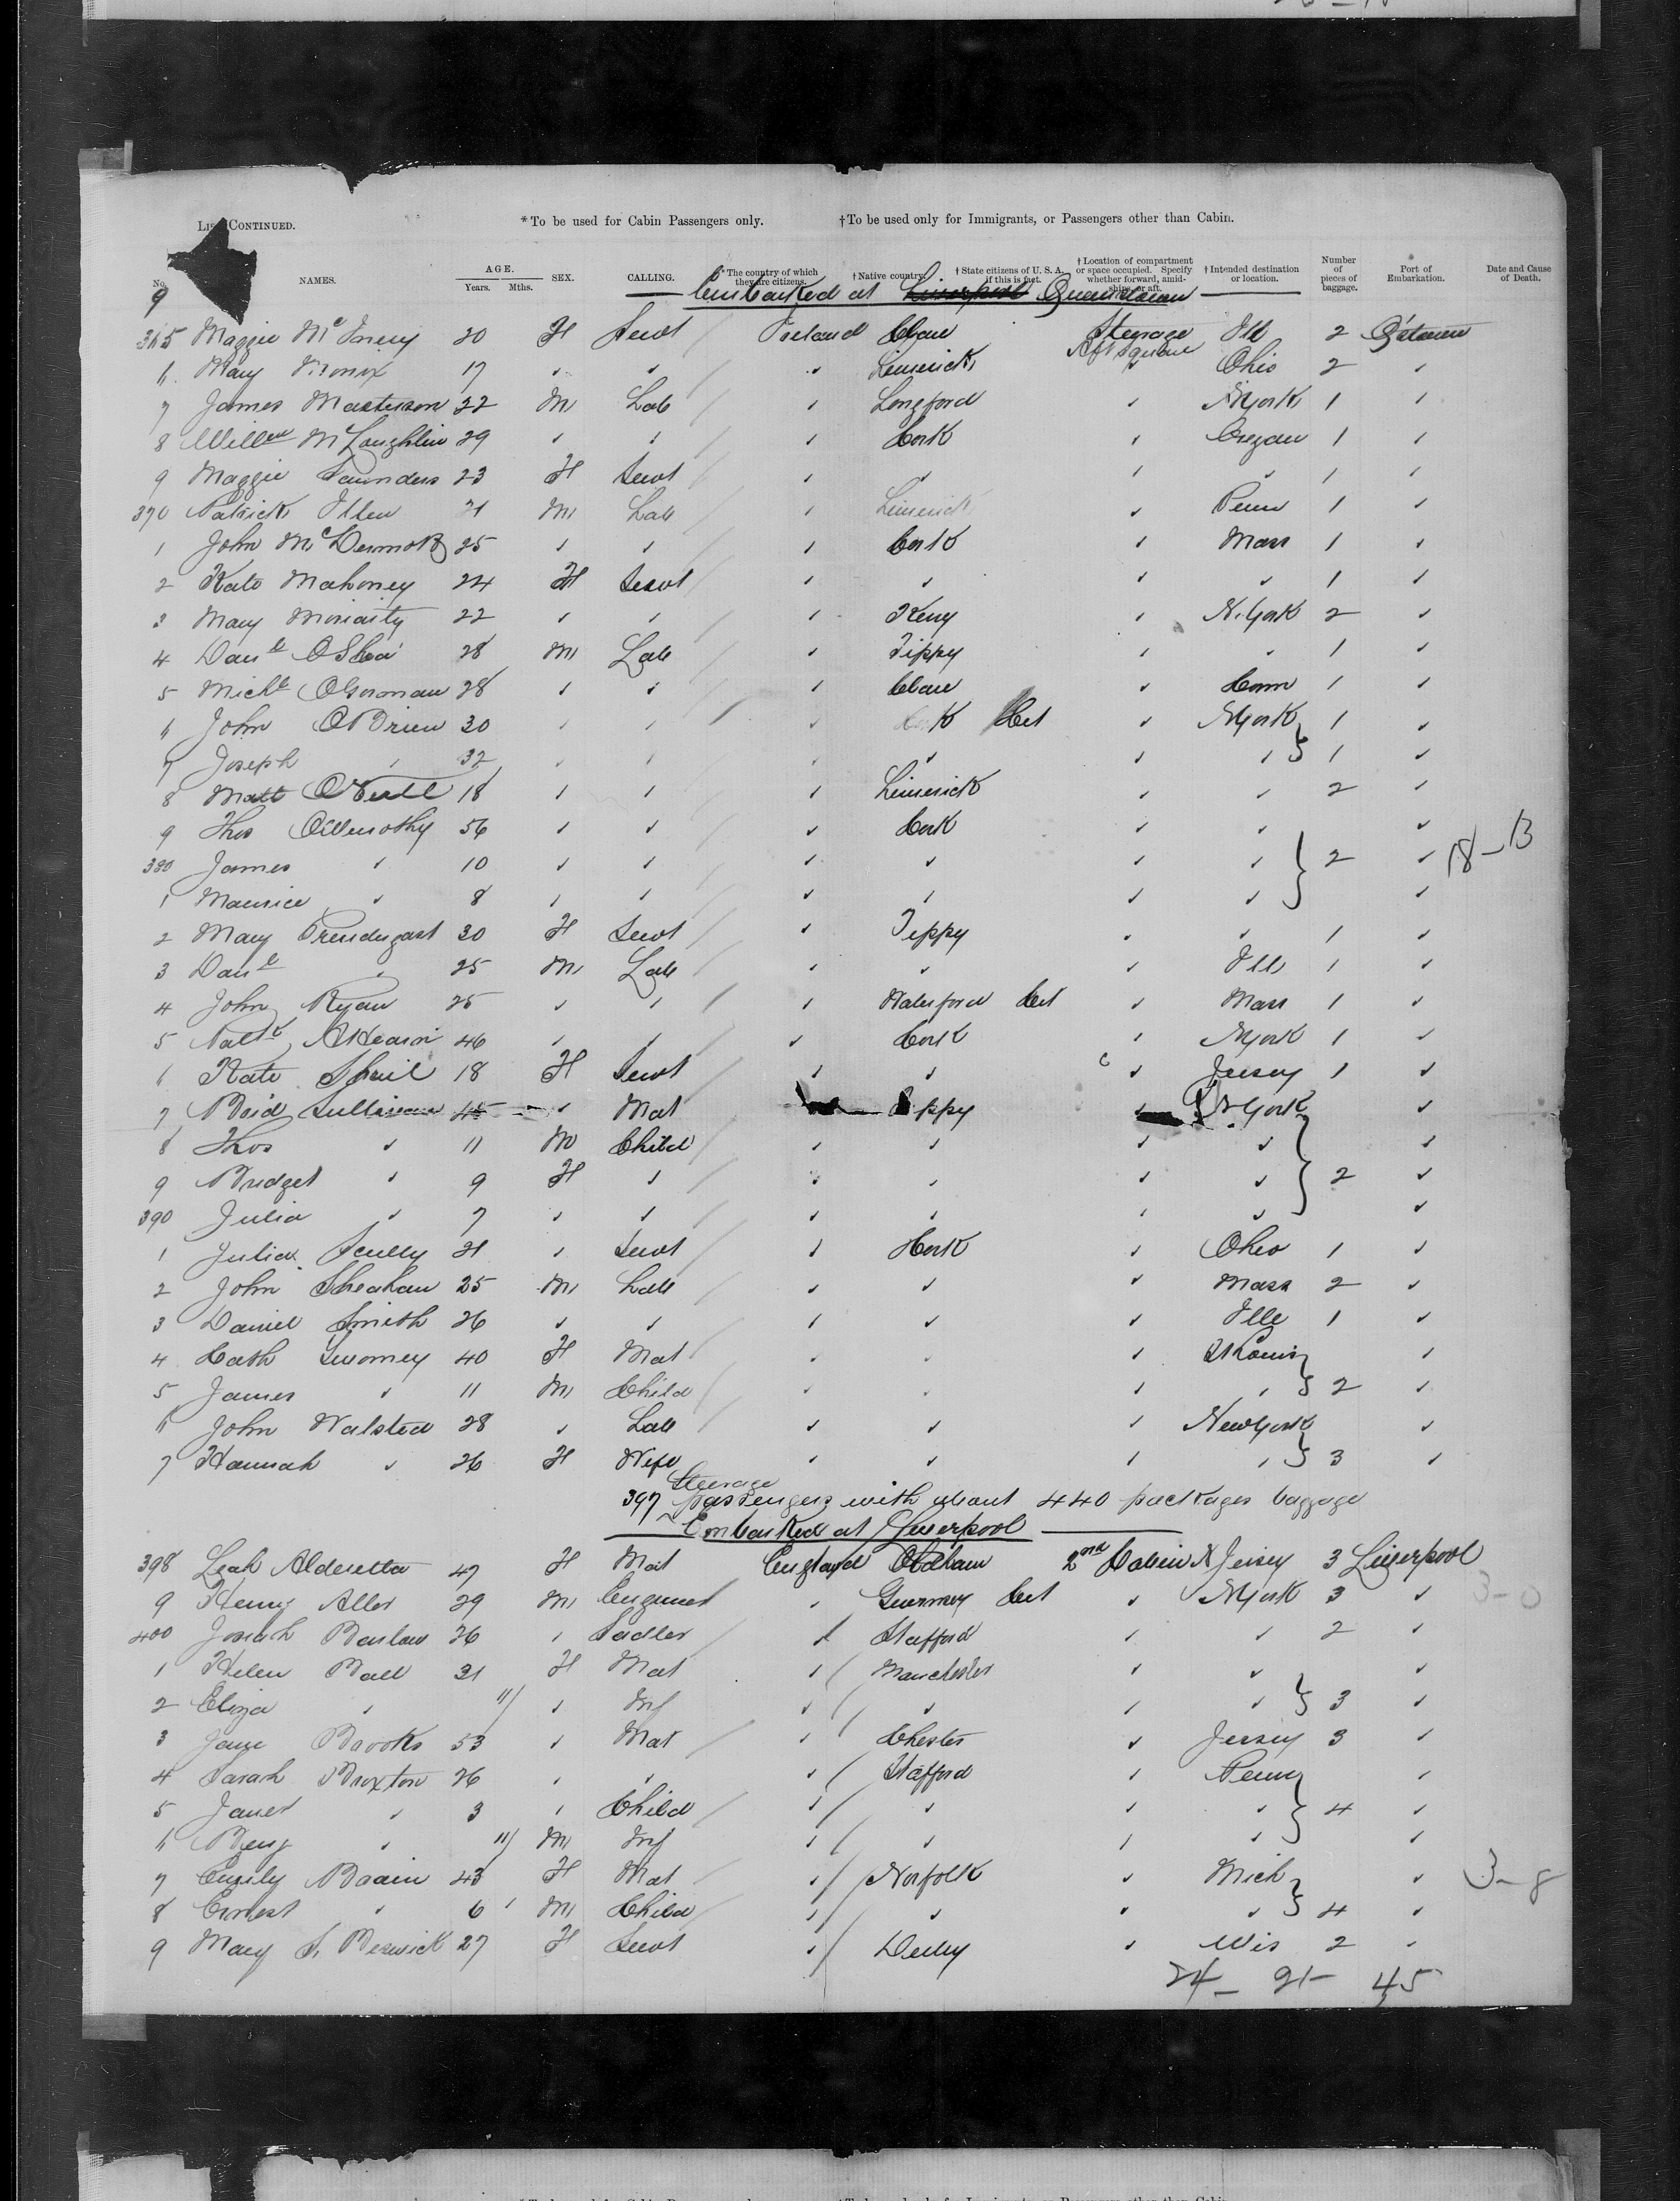 LIST CONTINUED. *To be used for Cabin Passengers only. †To be used only for Immigrants, or Passengers other than Cabin.
No. NAMES. AGE. Years. Mths. SEX. CALLING. *The country of which they are citizens. †Native country. †State citizens of U. S. A. if this is fact. †Location of compartment or space occupied. Specify whether forward, amidships, or aft. †Intended destination or location. Number of pieces of baggage. Port of Embarkation. Date and Cause of Death.
9 Embarked at Liverpool Queenstown
365 Maggie 20 F Servt Ireland Clare Steerage Aft Square Ill 2 Q'town
6 Mary 17 " " " Limerick " Ohio 2 "
7 James Masterson 22 M Lab " Longford " N York 1 "
8 Willm McLoughlin 29 " " " Cork " Oregan 1 "
9 Maggie Saunders 23 F Servt " " " " 1 "
370 Patrick Allen 21 M Lab " Limerick " Penn 1 "
1 John McDermott 25 " " " Cork " Mass 1 "
2 Kate Mahoney 24 F Servt " " " " 1 "
3 Mary Moriarty 22 " " " Kerry " N. York 2 "
4 Danl OShea 28 M Lab " Tippy " " 1 "
5 Michl OGorman 28 " " " Clare " Conn 1 "
6 John OBrien 30 " " " Cork Cit " N York 1 "
7 Joseph " 32 " " " " " " 1 "
8 Matt ONeill 18 " " " Limerick " " 2 "
9 Thos 56 " " " Cork " " "
380 James " 10 " " " " " " 2 " 18-13
1 Maurice " 8 " " " " " " "
2 Mary Prendergast 30 F Servt " Tippy " " 1 "
3 Danl " 25 M Lab " " " Ill 1 "
4 John Ryan 25 " " " Waterford Cit " Mass 1 "
5 Patk AHearn 46 " " " Cork " N York 1 "
6 Kate Shiel 18 F Servt " " " Jersey 1 "
7 Brid Sullivan 45 " Mat Tippy " N York "
8 Thos " 11 M Child " " " " "
9 Bridget " 9 F " " " " " 2 "
390 Julia " 7 " " " " " " "
1 Julia Scully 21 " Servt " Cork " Ohio 1 "
2 John Sheahan 25 M Lab " " " Mass 2 "
3 Daniel Smith 26 " " " " " Ills 1 "
4 Cath Swomey 40 F Mat " " " St Louis "
5 James " 11 M Child " " " " 2 "
6 John Walsted 28 " Lab " " " New York "
7 Hannah " 26 F Wife " " " " 3 "
397 Steerage passengers with about 440 packages baggage
Embarked at Liverpool
398 Leah 47 F Mat England Oldham 2nd Cabin N Jersey 3 Liverpool
9 Henry Alles 29 M Engineer " Guernsey Cit " N York 3 " 3-0
400 Josiah Barlow 26 " Sadler " Stafford " " 2 "
1 Helen Ball 31 F Mat " Manchester " " "
2 Eliza " 11/ " Inf " " " " 3 "
3 Jane Brooks 53 " Mat " Chester " Jersey 3 "
4 Sarah Broxton 26 " " " Stafford " Penn "
5 Janet " 3 " Child " " " " 4 "
6 Benj " 11/ M Inf " " " " "
7 Emily Braain 43 F Mat " Norfolk " Mich " 3-8
8 Ernest " 6 M Child " " " " 4 "
9 Mary S. Beswick 27 F Servt " Derby " Wis 2 "
24- 21- 45